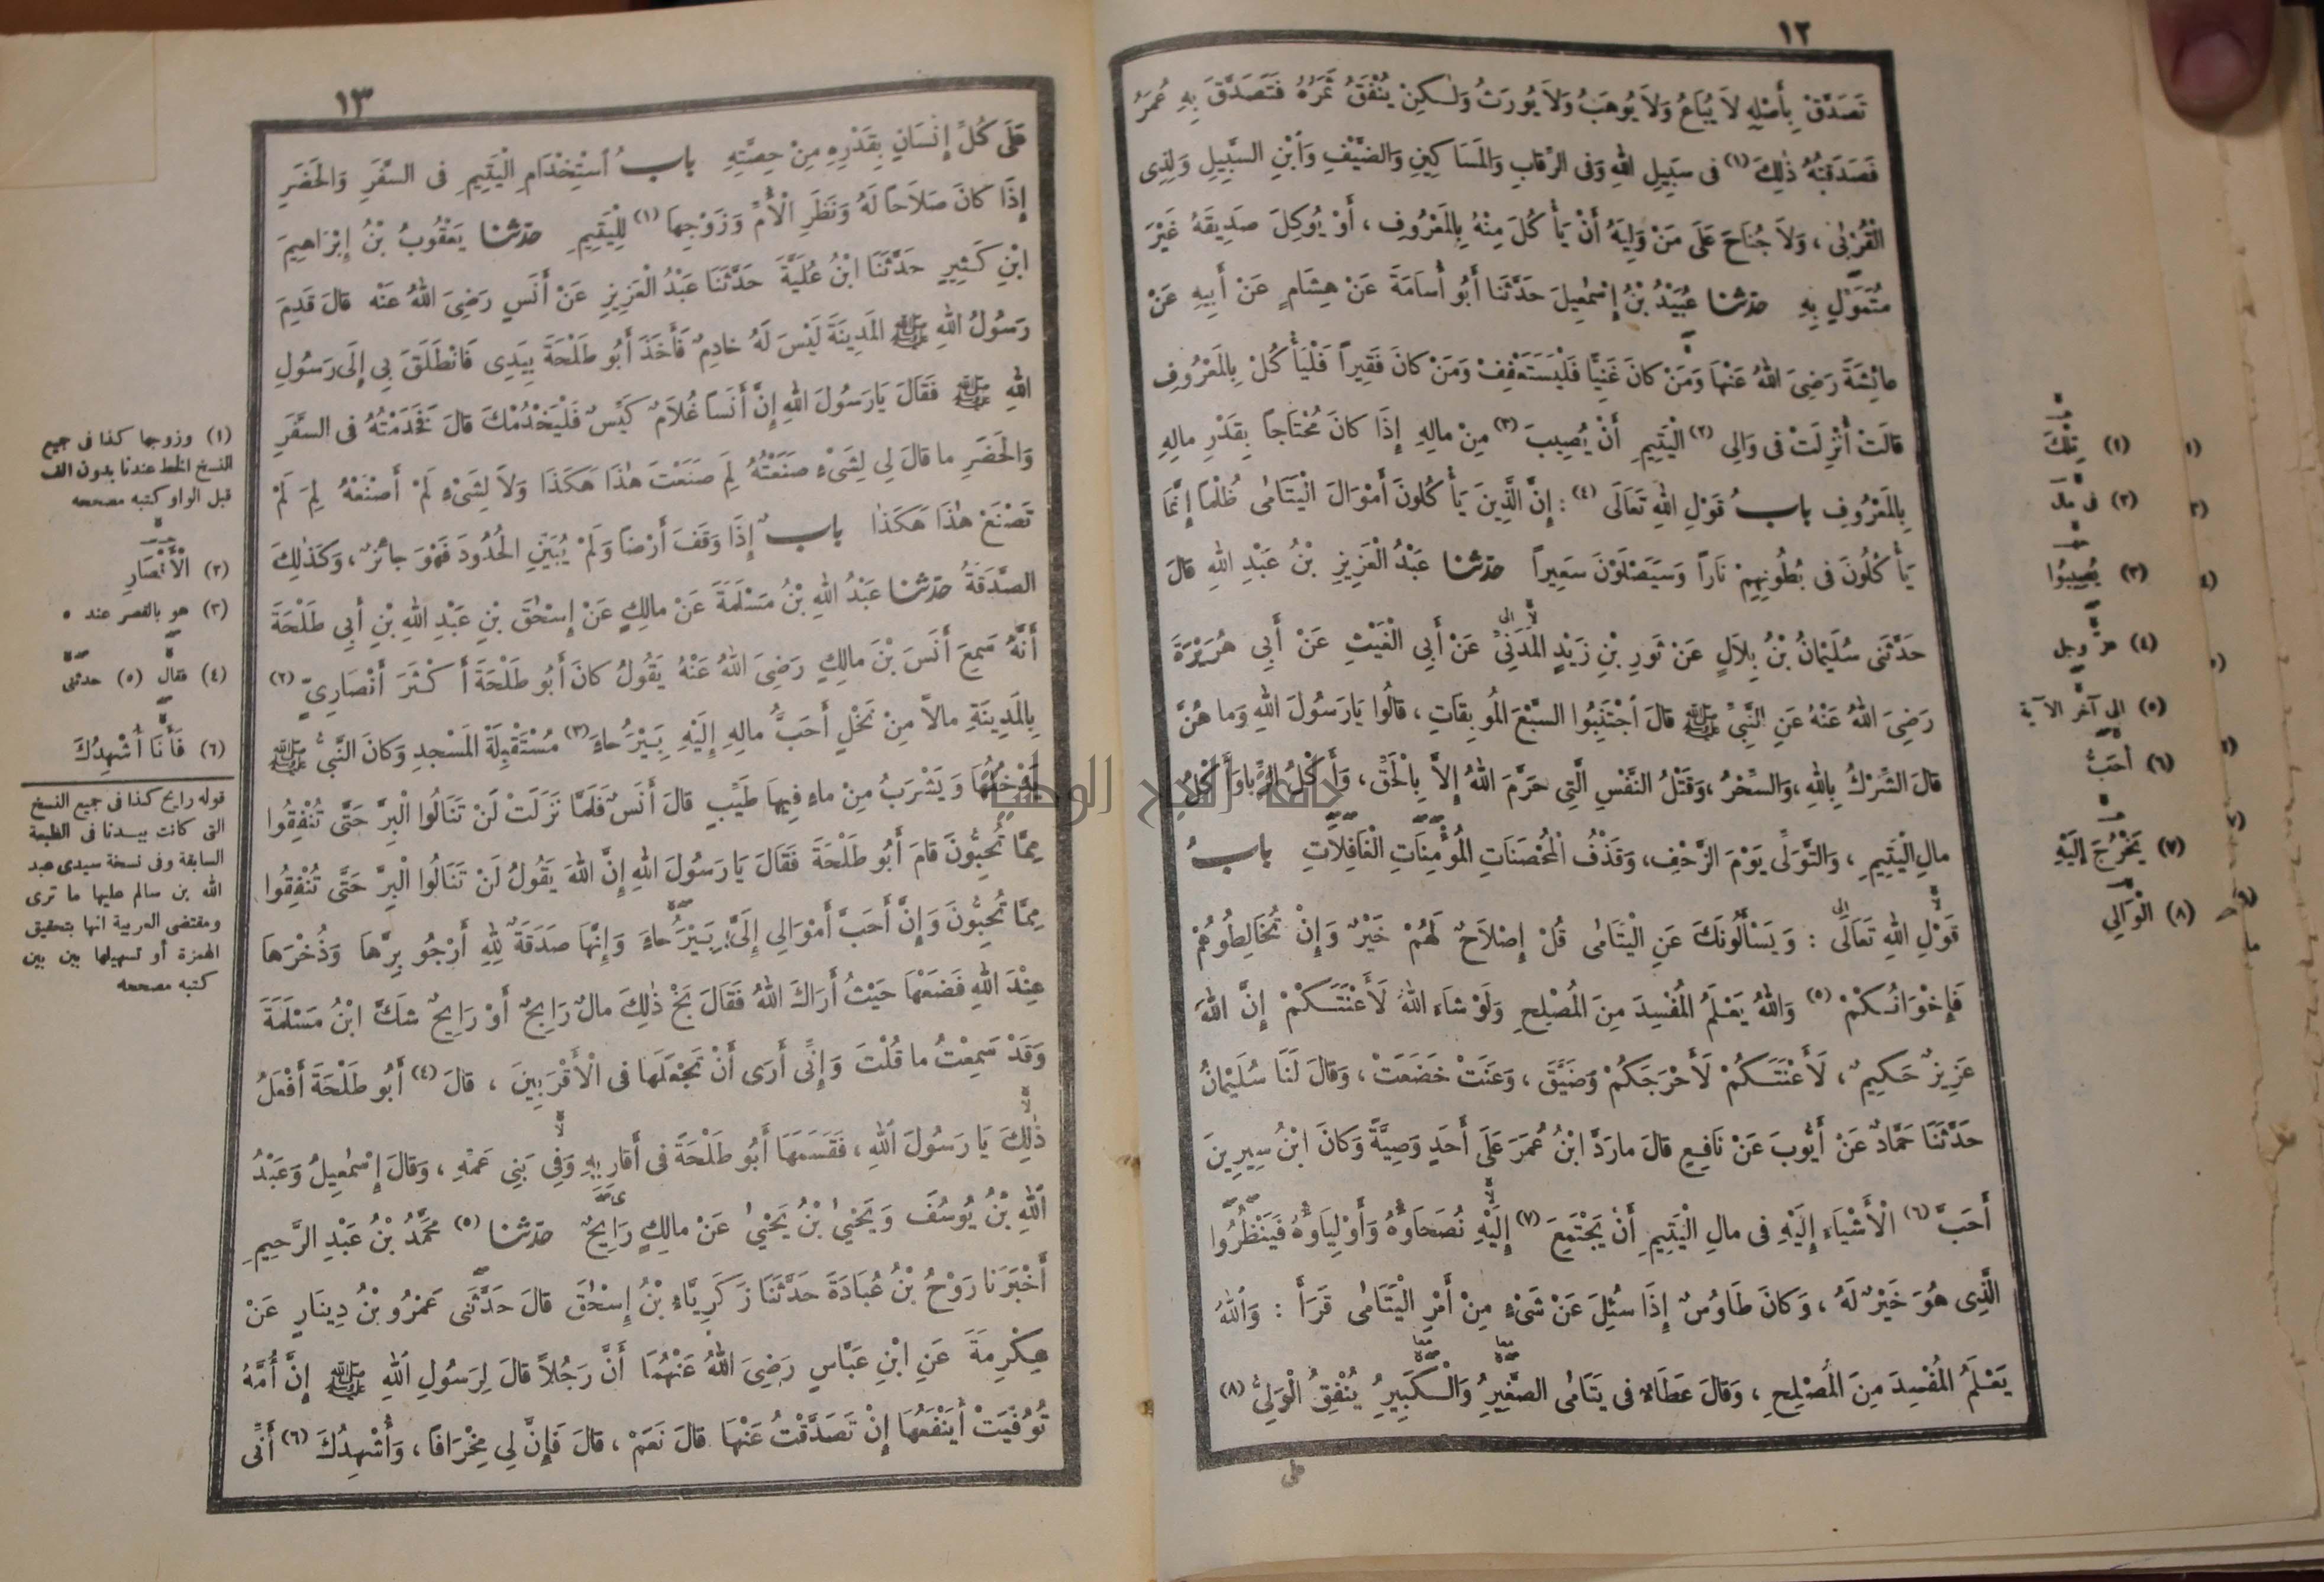 ١٢
تَصَدَّقْ بِأَصْلِهِ لاَ يُبَاعُ وَلاَ يُوهَبُ وَلاَ يُورَثُ وَلٰكِنْ يُنْفَقُ ثَمَرُهُ فَتَصَدَّقَ بِهِ عُمَرُ
فَصَدَقَتُهُ ذٰلِكَ (١) فى سَبِيلِ اللهِ وَفى الرِّقَابِ وَالمَسَاكِينِ وَالضَّيْفِ وَابْنِ السَّبِيلِ وَلِذِى
الْقُرْبٰى ، وَلاَ جُنَاحَ عَلَى مَنْ وَلِيَهُ أَنْ يَأْكُلَ مِنْهُ بِالمَعْرُوفِ ، أَوْ يُوكِلَ صَدِيقَهُ غَيْرَ
مُتَمَوِّلٍ بِهِ حدثنا عُبَيْدُ بْنُ إِسْمٰعِيلَ حَدَّثَنَا أَبُو أُسَامَةَ عَنْ هِشَامٍ عَنْ أَبِيهِ عَنْ
عائِشَةَ رَضِىَ اللهُ عَنْهَا وَمَنْ كانَ غَنِيًّا فَلْيَسْتَعْفِفْ وَمَنْ كانَ فَقِيراً فَلْيَأْكُلْ بِالمَعْرُوفِ
قالَتْ أُنْزِلَتْ فى وَالِى (٢) الْيَتِيمِ أَنْ يُصِيبَ (٣) مِنْ مالِهِ إِذَا كانَ مُحْتَاجاً بِقَدْرِ مالِهِ
بِالمَعْرُوفِ باب قَوْلِ اللهِ تَعَالَى (٤) : إِنَّ الَّذِينَ يَأْكُلُونَ أَمْوَالَ الْيَتَامٰى ظُلْماً إِنَّمَا
يَأْكُلُونَ فى بُطُونِهِمْ نَاراً وَسَيَصْلَوْنَ سَعِيراً حدثنا عَبْدُ الْعَزِيزِ بْنُ عَبْدِ اللهِ قالَ
حَدَّثَنِى سُلَيْمانُ بْنُ بِلاَلٍ عَنْ ثَوْرِ بْنِ زَيْدٍ المَدَنِىِّ عَنْ أَبِى الْغَيْثِ عَنْ أَبِى هُرَيْرَةَ
رَضِىَ اللهُ عَنْهُ عَنِ النَّبِىِّ ﷺ قالَ اجْتَنِبُوا السَّبْعَ المُوبِقَاتِ ، قالُوا يَارَسُولَ اللهِ وَما هُنَّ
قالَ الشِّرْكُ بِاللهِ ، وَالسِّحْرُ ، وَقَتْلُ النَّفْسِ الَّتِى حَرَّمَ اللهُ إِلاَّ بِالْحَقِّ ، وَأَكْلُ الرِّبَا وَأَكْلُ
مالِ الْيَتِيمِ ، وَالتَّوَلِّى يَوْمَ الزَّحْفِ ، وَقَذْفُ المُحْصَنَاتِ المُؤْمِنَاتِ الْغَافِلاَتِ باب
قَوْلِ اللهِ تَعَالَى : وَيَسْأَلُونَكَ عَنِ الْيَتَامٰى قُلْ إِصْلاَحٌ لَهُمْ خَيْرٌ وَإِنْ تُخَالِطُوهُمْ
فَإِخْوَانُكُمْ (٥) وَاللهُ يَعْلَمُ المُفْسِدَ مِنَ المُصْلِحِ وَلَوْ شَاءَ اللهُ لَأَعْنَتَكُمْ إِنَّ اللهَ
عَزِيزٌ حَكِيمٌ ، لَأَعْنَتَكُمْ لَأَحْرَجَكُمْ وَضَيَّقَ ، وَعَنَتْ خَضَعَتْ ، وَقالَ لَنَا سُلَيْمانُ
حَدَّثَنَا حَمَّادٌ عَنْ أَيُّوبَ عَنْ نَافِعٍ قالَ مارَدَّ ابْنُ عُمَرَ عَلَى أَحَدٍ وَصِيَّةً وَكانَ ابْنُ سِيرِينَ
أَحَبَّ (٦) الْأَشْيَاءِ إِلَيْهِ فى مالِ الْيَتِيمِ أَنْ يَجْتَمِعَ (٧) إِلَيْهِ نُصَحَاؤُهُ وَأَوْلِيَاؤُهُ فَيَنْظُرُوا
الَّذِى هُوَ خَيْرٌ لَهُ ، وَكانَ طَاوُسٌ إِذَا سُئِلَ عَنْ شَىْءٍ مِنْ أَمْرِ الْيَتَامٰى قَرَأَ : وَاللهُ
يَعْلَمُ المُفْسِدَ مِنَ المُصْلِحِ ، وَقالَ عَطَاءٌ فى يَتَامٰى الصَّغِيرِ وَالْكَبِيرِ يُنْفِقُ الْوَلِىُّ (٨)
على
(١) تِلْكَ
(٢) فى مال
(٣) يُصِيبُوا
(٤) عز وجل
(٥) الى آخر الآية
(٦) أحَبُّ
(٧) يَخْرُجَ إلَيْهِ
(٨) الْوَالِي
١٣
عَلَى كُلِّ إِنْسَانٍ بِقَدْرِهِ مِنْ حِصَّتِهِ باب اسْتِخْدَامِ الْيَتِيمِ فى السَّفَرِ وَالحَضَرِ
إِذَا كانَ صَلاَحاً لَهُ وَنَظَرِ الْأُمِّ وَزَوْجِهَا (١) لِلْيَتِيمِ حدثنا يَعْقُوبُ بْنُ إِبْرَاهِيمَ
ابْنِ كَثِيرٍ حَدَّثَنَا ابْنُ عُلَيَّةَ حَدَّثَنَا عَبْدُ الْعَزِيزِ عَنْ أَنَسٍ رَضِىَ اللهُ عَنْه قالَ قَدِمَ
رَسُولُ اللهِ ﷺ المَدِينَةَ لَيْسَ لَهُ خادِمٌ فَأَخَذَ أَبُو طَلْحَةَ بِيَدِى فَانْطَلَقَ بِى إِلَى رَسُولِ
اللهِ ﷺ فَقَالَ يَارَسُولَ اللهِ إِنَّ أَنَساً غُلاَمٌ كَيِّسٌ فَلْيَخْدُمْكَ قالَ فَخَدَمْتُهُ فى السَّفَرِ
وَالحَضَرِ ما قالَ لِى لِشَىْءٍ صَنَعْتُهُ لِمَ صَنَعْتَ هٰذَا هٰكَذَا وَلاَ لِشَىْءٍ لَمْ أَصْنَعْهُ لِمَ لَمْ
تَصْنَعْ هٰذَا هٰكَذَا باب إِذَا وَقَفَ أَرْضاً وَلَمْ يُبَيِّنِ الحُدُودَ فَهْوَ جائِزٌ ، وَكَذٰلِكَ
الصَّدَقَةُ حدثنا عَبْدُ اللهِ بْنُ مَسْلَمَةَ عَنْ مالِكٍ عَنْ إِسْحٰقَ بْنِ عَبْدِ اللهِ بْنِ أَبِى طَلْحَةَ
أَنَّهُ سَمِعَ أَنَسَ بْنَ مالِكٍ رَضِىَ اللهُ عَنْهُ يَقُولُ كانَ أَبُو طَلْحَةَ أَكْثَرَ أَنْصَارِىٍّ (٢)
بِالمَدِينَةِ مالاً مِنْ نَخْلٍ أَحَبُّ مالِهِ إِلَيْهِ بَيْرُحاءَ (٣) مُسْتَقْبِلَةَ المَسْجِدِ وَكانَ النَّبِىُّ ﷺ
يَدْخُلُهَا وَيَشْرَبُ مِنْ ماءٍ فِيهَا طَيِّبٍ قالَ أَنَسٌ فَلَمَّا نَزَلَتْ لَنْ تَنَالُوا الْبِرَّ حَتَّى تُنْفِقُوا
مِمَّا تُحِبُّونَ قامَ أَبُو طَلْحَةَ فَقَالَ يَا رَسُولَ اللهِ إِنَّ اللهَ يَقُولُ لَنْ تَنَالُوا الْبِرَّ حَتَّى تُنْفِقُوا
مِمَّا تُحِبُّونَ وَإِنَّ أَحَبَّ أَمْوَالِى إِلَىَّ بَيْرُحاءَ وَإِنَّهَا صَدَقَةٌ لِلهِ أَرْجُو بِرَّهَا وَذُخْرَهَا
عِنْدَ اللهِ فَضَعْهَا حَيْثُ أَرَاكَ اللهُ فَقَالَ بَخْ ذٰلِكَ مالٌ رَابِحٌ أَوْ رَايِحٌ شَكَّ ابْنُ مَسْلَمَةَ
وَقَدْ سَمِعْتُ ما قُلْتَ وَإِنِّى أَرَى أَنْ تَجْعَلَهَا فى الْأَقْرَبِينَ ، قالَ (٤) أَبُو طَلْحَةَ أَفْعَلُ
ذٰلِكَ يَا رَسُولَ اللهِ ، فَقَسَمَهَا أَبُو طَلْحَةَ فى أَقَارِبِهِ وَفِى بَنِى عَمِّهِ ، وَقالَ إِسْمٰعِيلُ وَعَبْدُ
اللهِ بْنُ يُوسُفَ وَيَحْيٰى بْنُ يَحْيٰى عَنْ مالِكٍ رَايِحٌ حدثنا (٥) مُحَمَّدُ بْنُ عَبْدِ الرَّحِيمِ
أَخْبَرَنَا رَوْحُ بْنُ عُبَادَةَ حَدَّثَنَا زَكَرِيَّاءُ بْنُ إِسْحٰقَ قالَ حَدَّثَنِى عَمْرُو بْنُ دِينَارٍ عَنْ
عِكْرِمَةَ عَنِ ابْنِ عَبَّاسٍ رَضِىَ اللهُ عَنْهُمَا أَنَّ رَجُلاً قالَ لِرَسُولِ اللهِ ﷺ إِنَّ أُمَّهُ
تُوُفِّيَتْ أَيَنْفَعُهَا إِنْ تَصَدَّقْتُ عَنْهَا قالَ نَعَمْ ، قالَ فَإِنَّ لِى مِخْرَافاً ، وَأُشْهِدُكَ (٦) أَنِّى
(١) وزوجها كذا فى جميع
النسخ الخط عندنا بدون الف
قبل الواو كتبه مصححه
(٢) الْأَنْصَارِ
(٣) هو بالقصر عند ه
(٤) فقال (٥) حدثنى
(٦) فَأَنَا أُشْهِدُكَ
قوله رايح كذا فى جميع النسخ
التى كانت بيدنا فى الطبعة
السابقة وفى نسخة سيدى عبد
الله بن سالم عليها ما ترى
ومقتضى العربية انها بتحقيق
الهمزة أو تسهيلها بين بين
كتبه مصححه
جامعة النجاح الوطنية